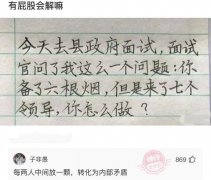 有屁股会解嘛
今天去县政府面试,面试
官问了我这么一个问题:你
备了六根烟,但是来了七个
领导,你怎么做?
子非愚
869
每两人中间放一颗,转化为内部矛盾